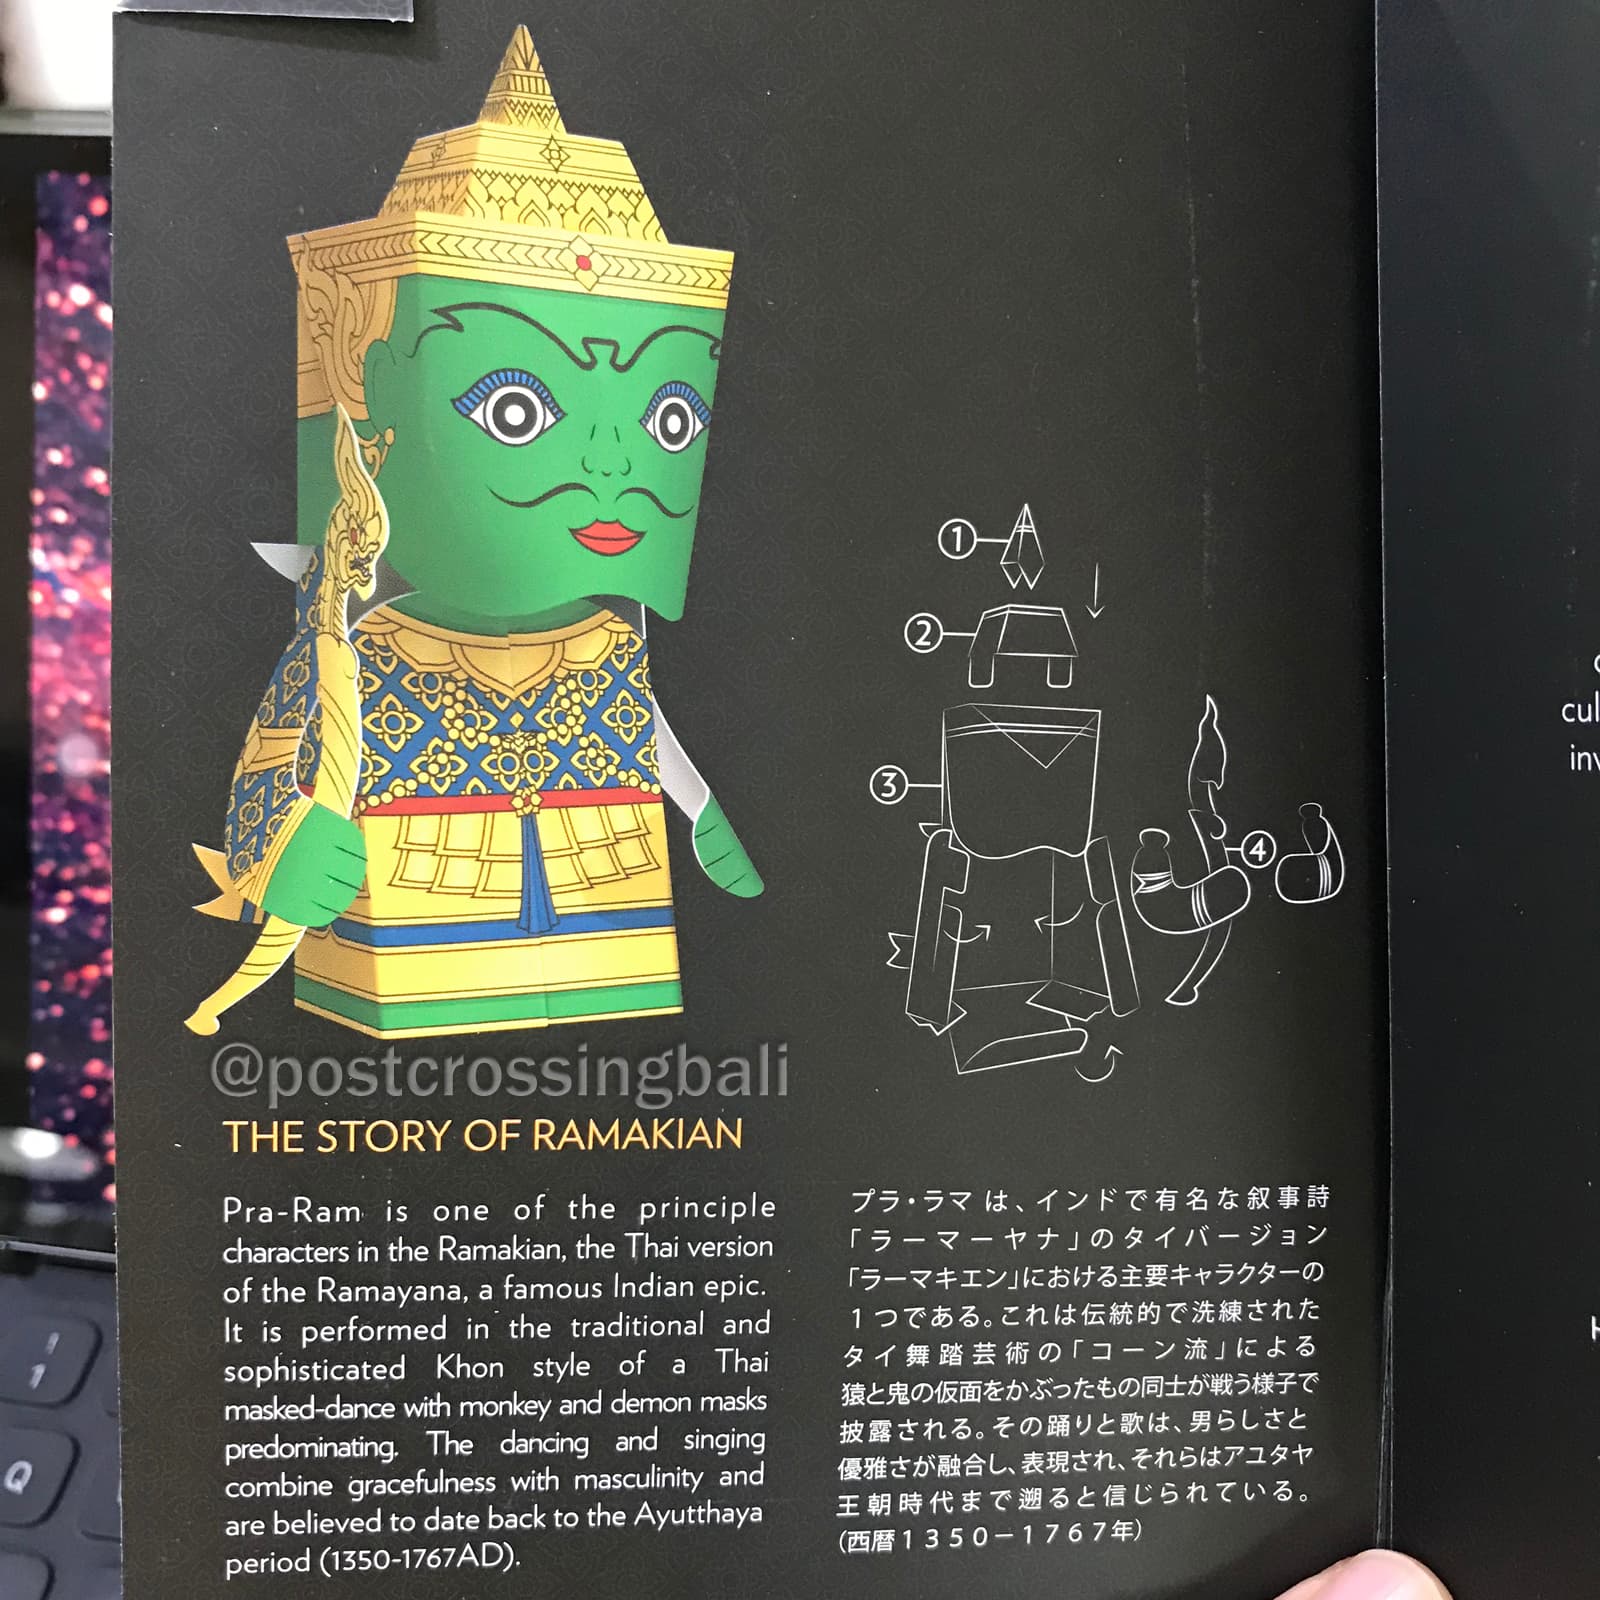 1
2
3
4
@postcrossingbali
THE STORY OF RAMAKIAN
Pra-Ram is one of the principle
characters in the Ramakian, the Thai version
of the Ramayana, a famous Indian epic.
It is performed in the traditional and
sophisticated Khon style of a Thai
masked-dance with monkey and demon masks
predominating. The dancing and singing
combine gracefulness with masculinity and
are believed to date back to the Ayutthaya
period (1350-1767AD).
プラ・ラマは、インドで有名な叙事詩
「ラーマーヤナ」のタイバージョン
「ラーマキエン」における主要キャラクターの
１つである。これは伝統的で洗練された
タイ舞踏芸術の「コーン流」による
猿と鬼の仮面をかぶったもの同士が戦う様子で
披露される。その踊りと歌は、男らしさと
優雅さが融合し、表現され、それらはアユタヤ
王朝時代まで遡ると信じられている。
（西暦１３５０－１７６７年）
cul
inv
!
1
Q